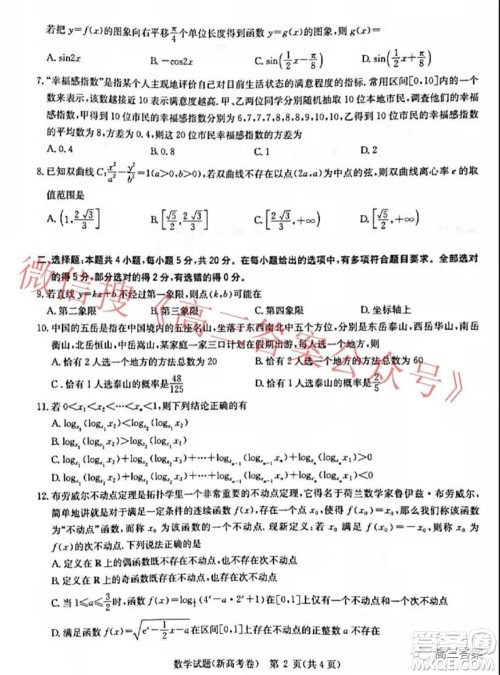 若把 y=f(x)的图象向右平移π/4个单位长度得到函数 y=g(x)的图象,则 g(x)=
A. sin2x B. -cos2x C. sin(1/2x-π/8) D. sin(1/2x+π/8)
7. “幸福感指数”是指某个人主观地评价自己对目前生活状态的满意程度的指标. 常用区间[0,10]内的一个
数来表示,该数越接近 10 表示满意度越高. 甲、乙两位同学分别随机抽取 10 位本地市民,调查他们的幸福
感指数,甲得到 10 位市民的幸福感指数分别为 6,7,7,8,8,8,8,9,9,10,乙得到 10 位市民的幸福感指数
的平均数为 8,方差为 0.4,则这 20 位市民幸福感指数的方差为
A. 0.4 B. 0.8 C. 1 D. 1.2
8. 已知双曲线 C:x²/a²-y²/b²=1(a>0,b>0),若双曲线不存在以点(2a,a)为中点的弦,则双曲线离心率 e 的取
值范围是
A. (1,2√3/3] B. [√5/2,2√3/3] C. [2√3/3,+∞) D. [√5/2,+∞)
二、选择题:本题共 4 小题,每小题 5 分,共 20 分。在每小题给出的选项中,有多项符合题目要求。全部选对
的得 5 分,部分选对的得 2 分,有选错的得 0 分。
9. 若直线 y=kx+b 不经过第一象限,则点(k,b)可能在
A. 第二象限 B. 第三象限 C. 第四象限 D. 坐标轴上
10. 中国的五岳是指在中国境内的五座名山,坐落于东西南北中五个方位,分别是东岳泰山,西岳华山,南岳
衡山,北岳恒山,中岳嵩山,某家庭一家三口计划在假期出游,每人选一个地方,则
A. 恰有 2 人选一个地方的方法总数为 20 B. 恰有 2 人选一个地方的方法总数为 60
C. 恰有 1 人选泰山的概率是48/125 D. 恰有 1 人选泰山的概率是2/5
11. 若 0<x₁<x₂<…<xₙ<1,则下列结论正确的有
12. 布劳威尔不动点定理是拓扑学里一个非常重要的不动点定理,它得名于荷兰数学家鲁伊兹·布劳威尔,
简单地讲就是对于满足一定条件的连续函数 f(x),存在一个点 x₀,使得 f(x₀)=x₀,那么我们称该函数
为“不动点”函数,而称 x₀ 为该函数的一个不动点. 现新定义:若 x₀ 满足 f(x₀)=-x₀,则称 x₀ 为
f(x)的次不动点. 下列说法正确的是
A. 定义在 R 上的偶函数既不存在不动点,也不存在次不动点
B. 定义在 R 上的奇函数既存在不动点,也存在次不动点
C. 当 1≤a≤3/2时,函数 f(x)=log½(4ˣ-a·2ˣ+1)在[0,1]上仅有一个不动点又存在次不动点
数学试题(新高考卷) 第 2 页(共 4 页)
微信搜《高三答案公众号》
高三答案